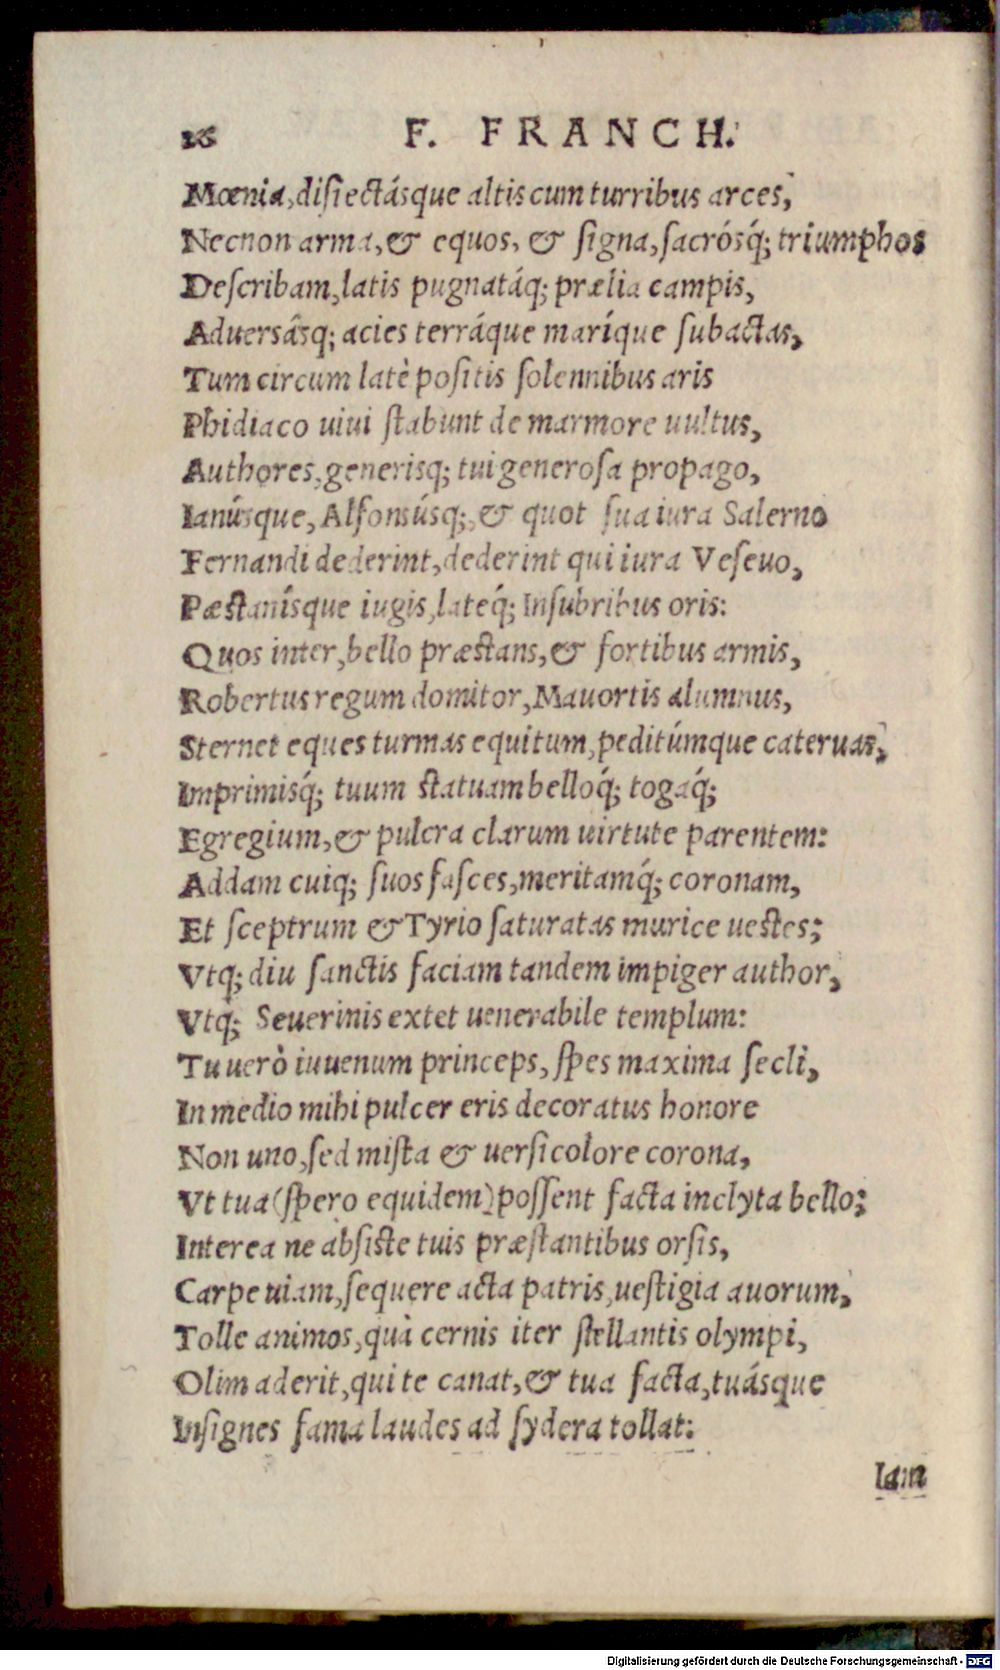 26 F. FRANCH.
Mœnia, disiectásque altis cum turribus arces,
Necnon arma, & equos, & signa, sacrósq́; triumphos
Describam, latis pugnatáq; prælia campis,
Aduersásq; acies terráque maríque subactas,
Tum circum latè positis solennibus aris
Phidiaco uiui stabunt de marmore uultus,
Authores, generisq; tui generosa propago,
Ianúsque, Alfonsúsq;, & quot sua iura Salerno
Fernandi dederint, dederint qui iura Veseuo,
Pæstanísque iugis, lateq́; Insubribus oris:
Quos inter, bello præstans, & fortibus armis,
Robertus regum domitor, Mauortis alumnus,
Sternet eques turmas equitum, peditúmque cateruas,
Imprimisq́; tuum statuam belloq́; togaq́;
Egregium, & pulcra clarum uirtute parentem:
Addam cuiq; suos fasces, meritamq́; coronam,
Et sceptrum & Tyrio saturatas murice uestes;
Vtq; diu sanctis faciam tandem impiger author,
Vtq; Seuerinis extet uenerabile templum:
Tu uerò iuuenum princeps, spes maxima secli,
In medio mihi pulcer eris decoratus honore
Non uno, sed mista & uersicolore corona,
Vt tua (spero equidem) possent facta inclyta bello;
Interea ne absiste tuis præstantibus orsis,
Carpe uiam, sequere acta patris, uestigia auorum,
Tolle animos, quà cernis iter stellantis olympi,
Olim aderit, qui te canat, & tua facta, tuásque
Insignes fama laudes ad sydera tollat:
Iam
Digitalisierung gefördert durch die Deutsche Forschungsgemeinschaft - DFG